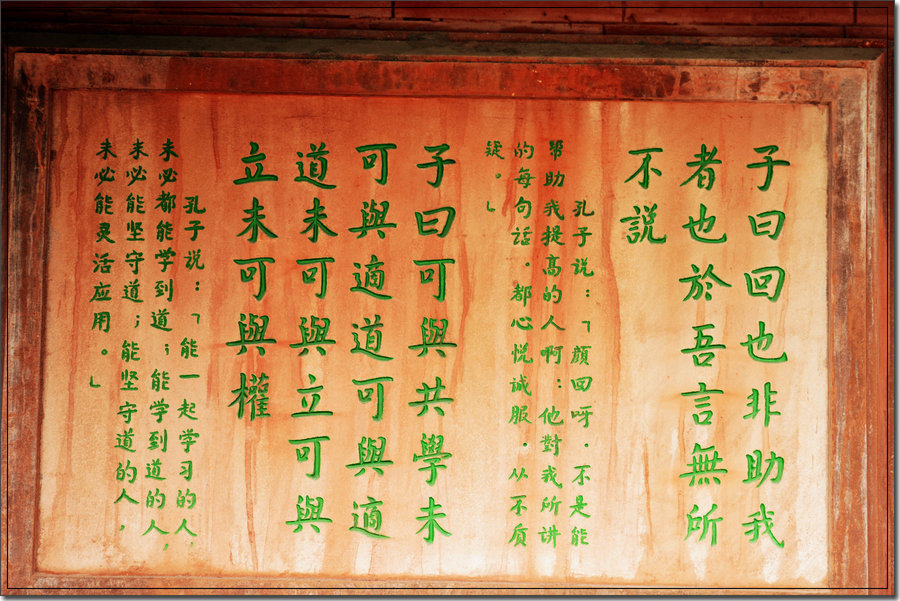 子曰回也非助我
者也於吾言無所
不説
孔子说：「顔回呀．不是能
帮助我提高的人啊：他對我所讲
的每句话．都心悦诚服．从不质
疑。」
子曰可與共學未
可與適道可與適
道未可與立可與
立未可與權
孔子说：「能一起学习的人，
未必都能学到道；能学到道的人，
未必能坚守道；能坚守道的人，
未必能灵活应用。」